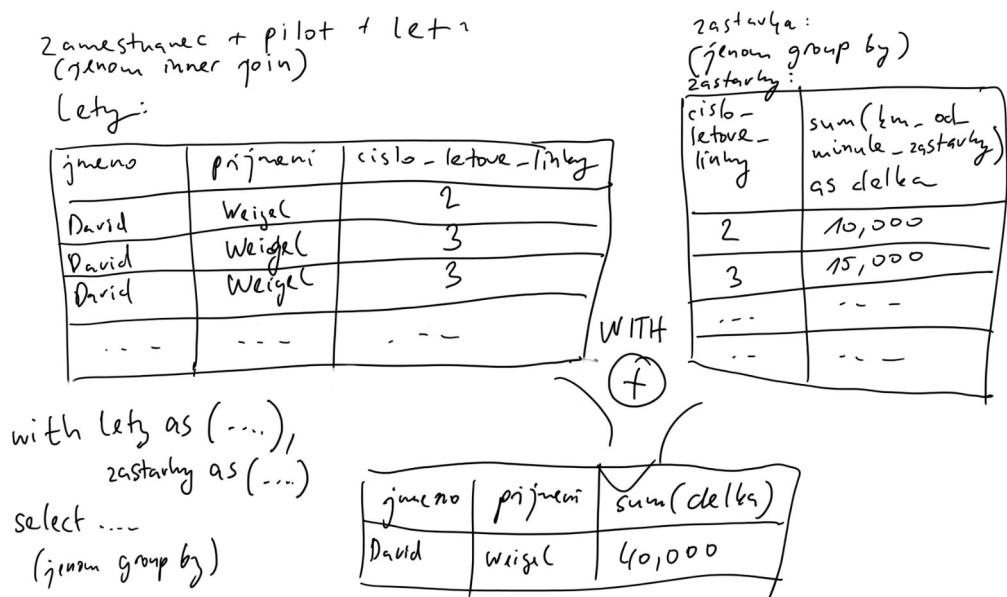 zamestnanec + pilot + let:
(jenom inner join)
lety:
jmeno prijmeni cislo_letove_linky
David Weigel 2
David Weigel 3
David Weigel 3
... ... ...
zastavka:
(jenom group by)
zastavky:
cislo_
letove_
linky
sum(km_od_
minule_zastavky)
as delka
2 10,000
3 15,000
... ...
... ...
WITH
+
with lety as (....),
zastavky as (....)
select ....
(jenom group by)
jmeno prijmeni sum(delka)
David Weigel 40,000